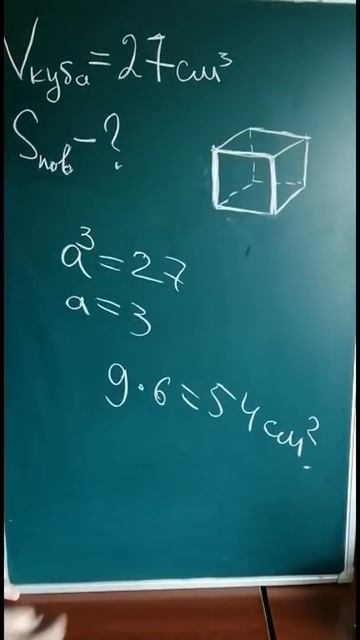 Vкуба = 27 см³
Sпов - ?
a³ = 27
a = 3
9 · 6 = 54 см².